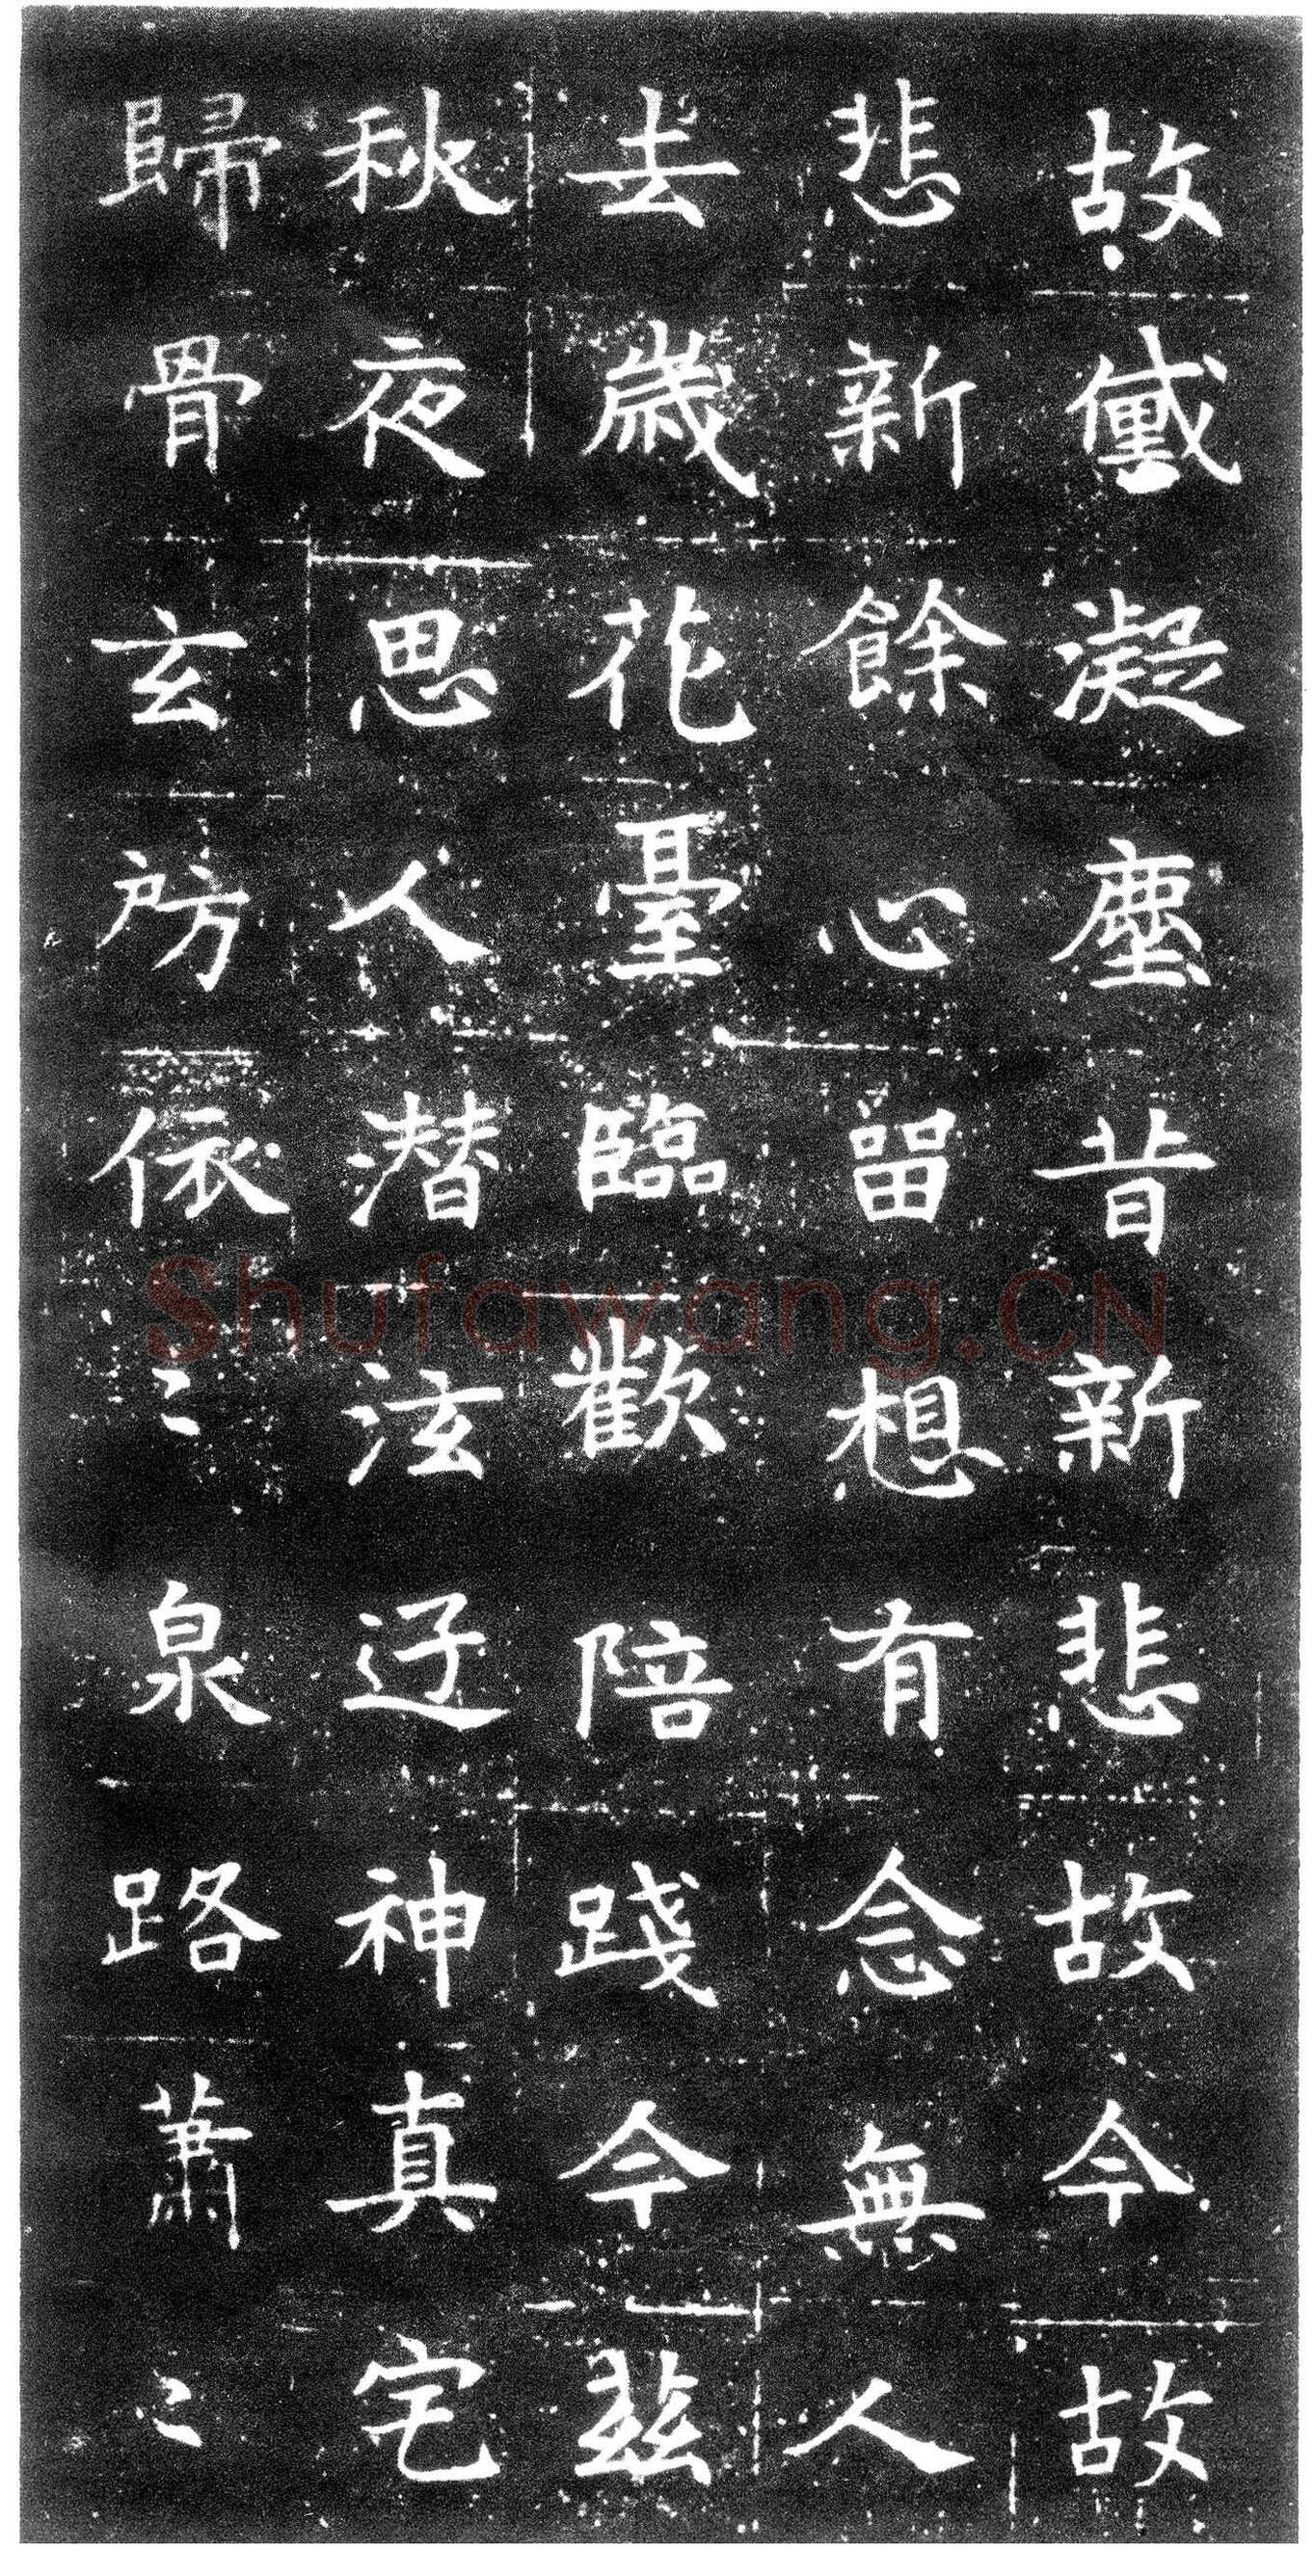 故黛凝塵昔新悲故今故
悲新餘心留想有念無人
去歲花臺臨歡陪踐今茲
秋夜思人潛泫迂神真宅
歸骨玄房依〻泉路蕭〻
Shufawang.CN